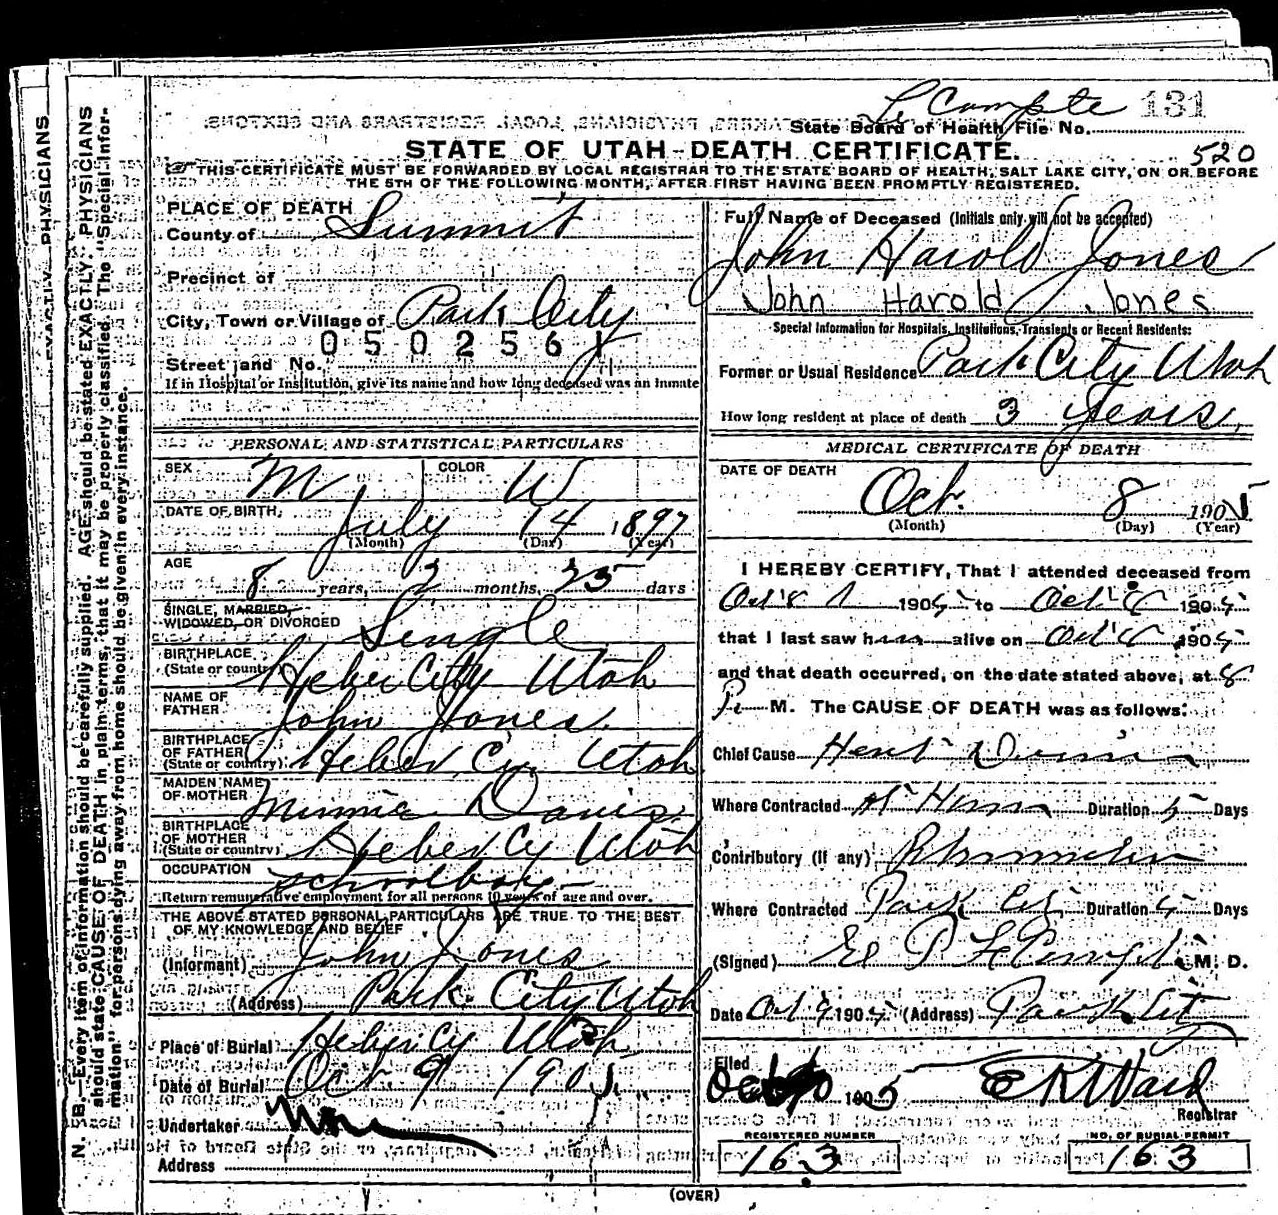 Le Compte 131
State Board of Health File No.
STATE OF UTAH-DEATH CERTIFICATE.
520
THIS CERTIFICATE MUST BE FORWARDED BY LOCAL REGISTRAR TO THE STATE BOARD OF HEALTH, SALT LAKE CITY, ON OR BEFORE
THE 5TH OF THE FOLLOWING MONTH, AFTER FIRST HAVING BEEN PROMPTLY REGISTERED.
PLACE OF DEATH
County of Summit
Precinct of
City, Town or Village of Park City
0502561
Street and No.
If in Hospital or Institution, give its name and how long deceased was an inmate
PERSONAL AND STATISTICAL PARTICULARS
SEX M COLOR W
DATE OF BIRTH July 14 1897
(Month) (Day) (Year)
AGE
8 years, 2 months, 25 days
SINGLE, MARRIED,
WIDOWED, OR DIVORCED Single
BIRTHPLACE
(State or country) Heber City Utah
NAME OF
FATHER John Jones
BIRTHPLACE
OF FATHER
(State or country) Heber Cy Utah
MAIDEN NAME
OF MOTHER Minnie Davis
BIRTHPLACE
OF MOTHER
(State or country) Heber Cy Utah
OCCUPATION schoolboy
Return remunerative employment for all persons 10 years of age and over.
THE ABOVE STATED PERSONAL PARTICULARS ARE TRUE TO THE BEST
OF MY KNOWLEDGE AND BELIEF
(Informant) John Jones
(Address) Park City Utah
Place of Burial Heber Cy Utah
Date of Burial Oct 9 1905
Undertaker
Address
Full Name of Deceased (Initials only will not be accepted)
John Harold Jones
John Harold Jones
Special Information for Hospitals, Institutions, Transients or Recent Residents:
Former or Usual Residence Park City Utah
How long resident at place of death 3 Years
MEDICAL CERTIFICATE OF DEATH
DATE OF DEATH
Oct. 8 1905
(Month) (Day) (Year)
I HEREBY CERTIFY, That I attended deceased from
Oct 1905 to Oct 8 1905
that I last saw him alive on Oct 8 1905
and that death occurred, on the date stated above, at 8
P. M. The CAUSE OF DEATH was as follows:
Chief Cause Heart
Where Contracted At Home Duration 5 Days
Contributory (if any) Rheumatism
Where Contracted Park City Duration 5 Days
(Signed) E. P. LeCompte M. D.
Date Oct 9 1905 (Address) Park City
Filed
Oct 1905 E R Ward
Registrar
REGISTERED NUMBER
163
NO. OF BURIAL PERMIT
163
(OVER)
N. B.—Every item of information should be carefully supplied. AGE should be stated EXACTLY. PHYSICIANS
should state CAUSE OF DEATH in plain terms, that it may be properly classified. The "Special Infor-
mation" for persons dying away from home should be given in every instance.
EXACTLY. PHYSICIANS